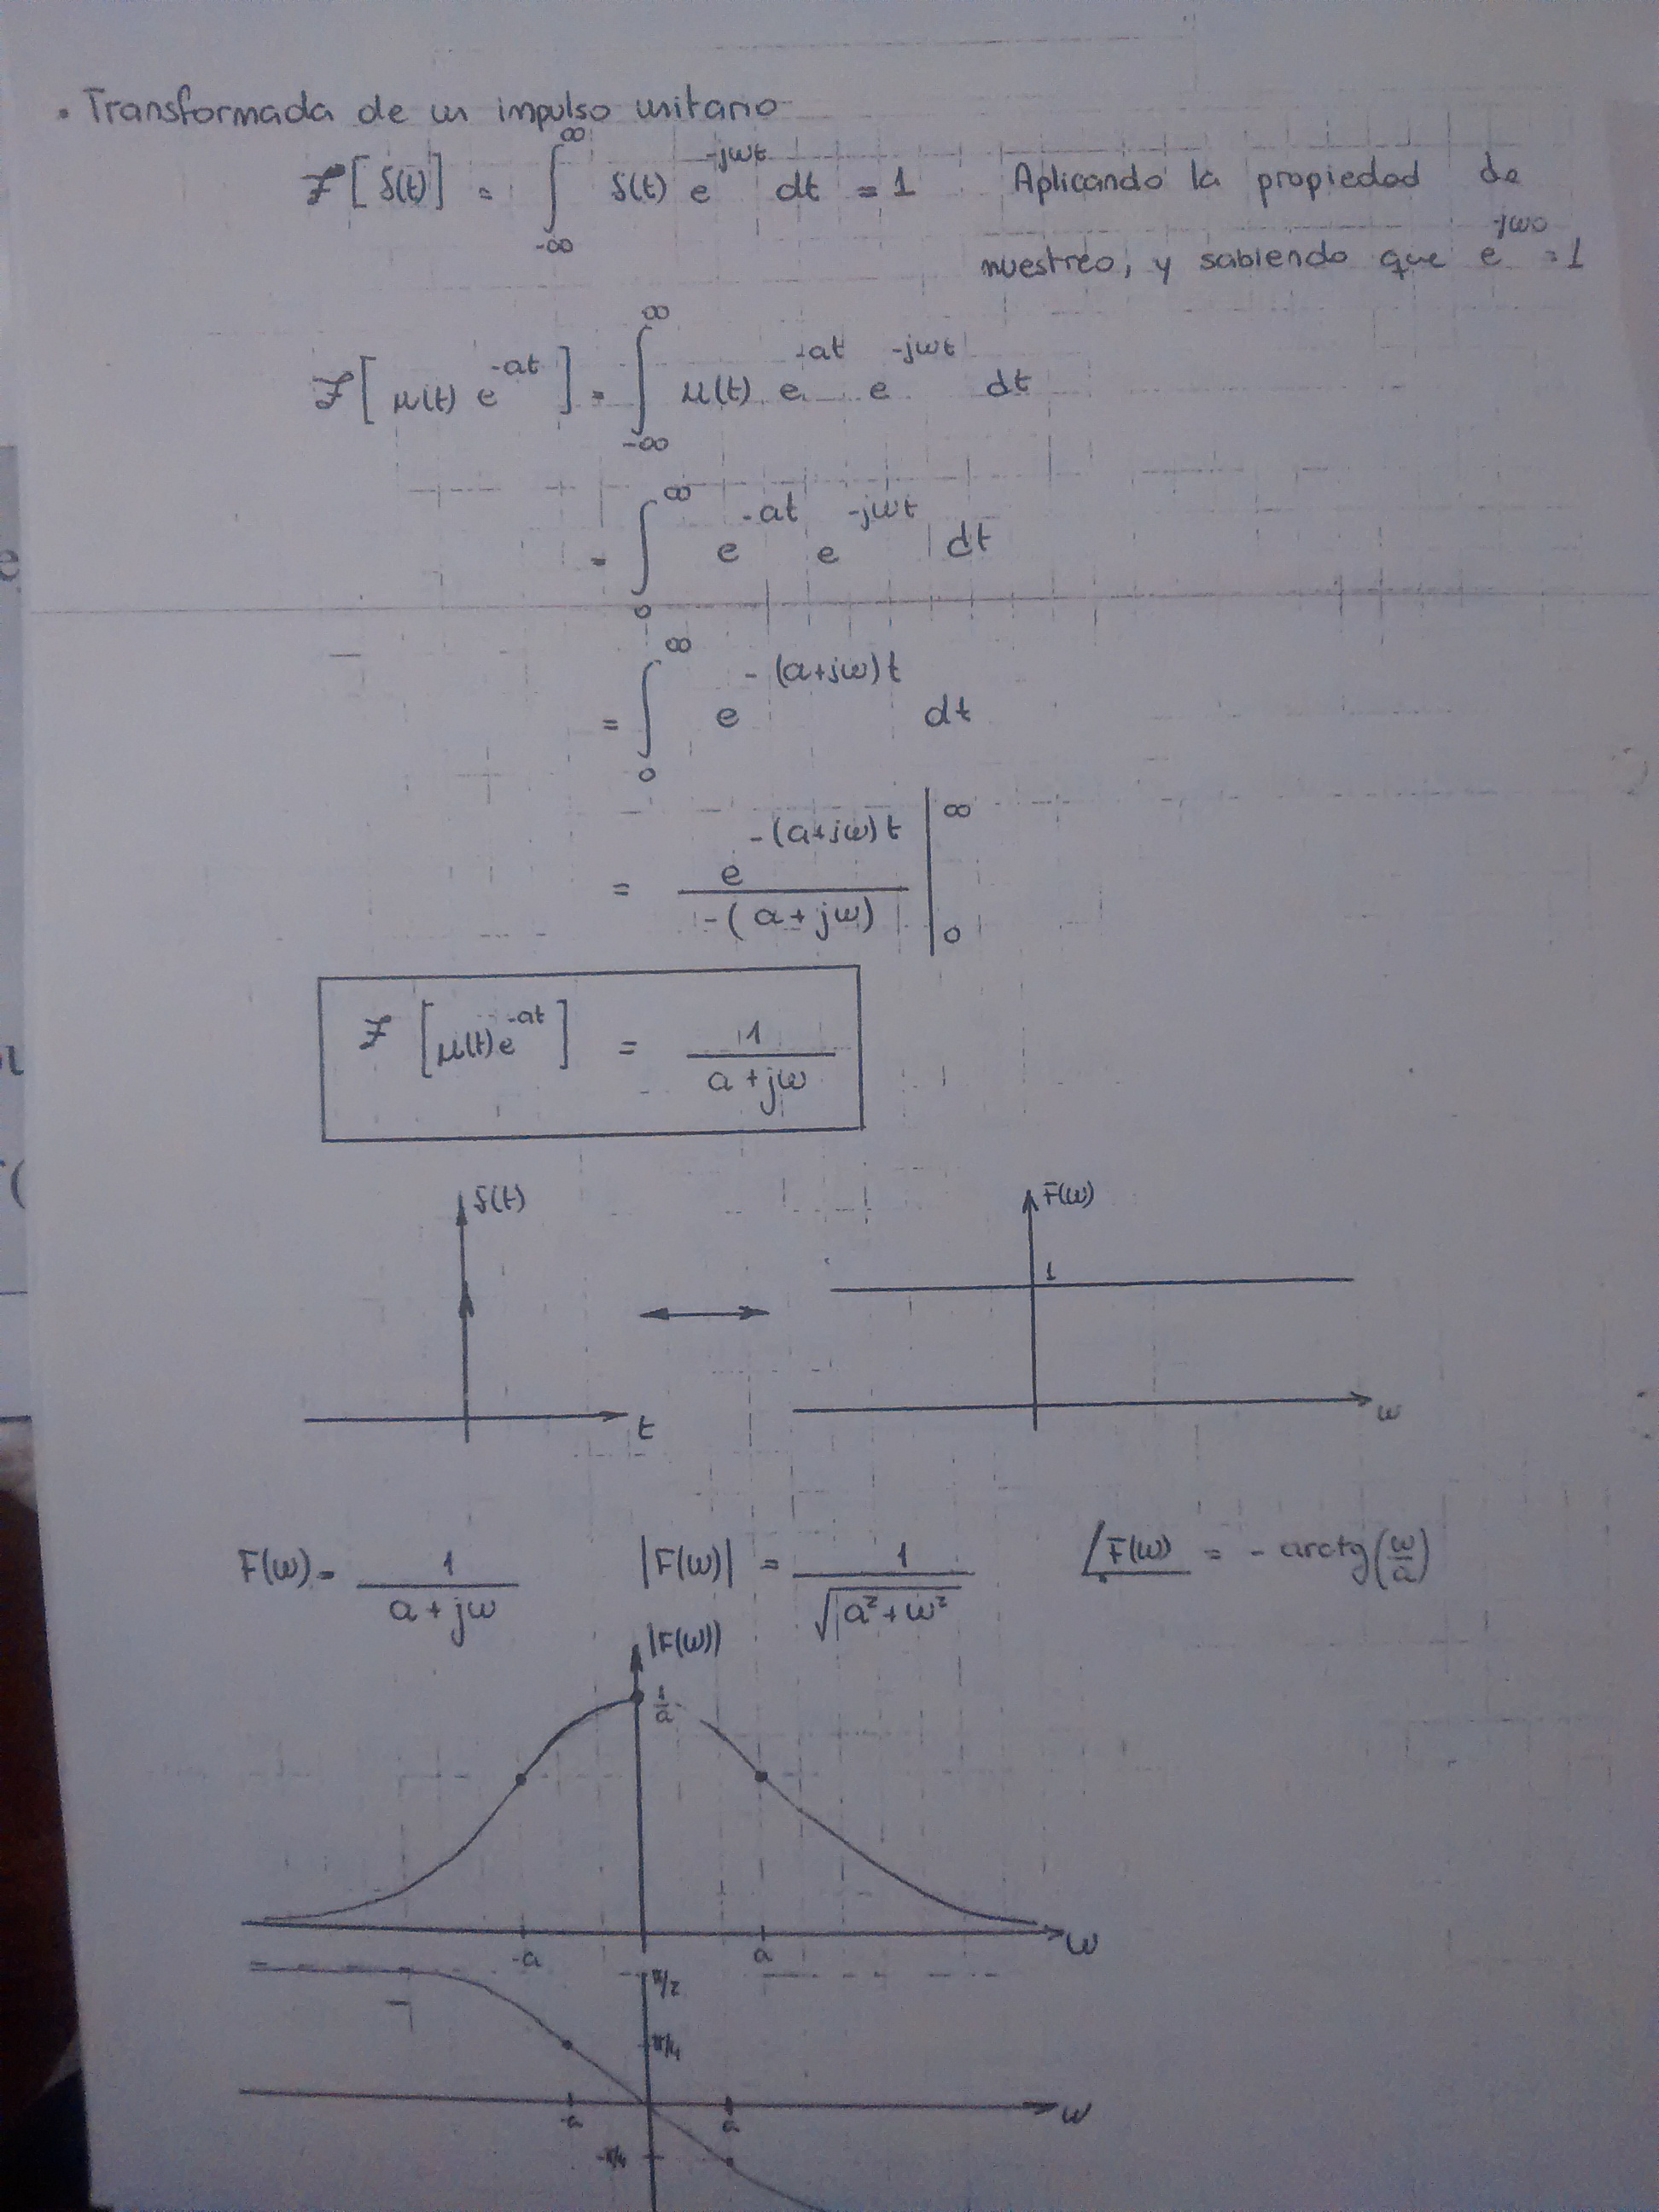 • Transformada de un impulso unitario
ℱ[δ(t)] = ∫_{-∞}^{∞} δ(t) e^{-jωt} dt = 1 Aplicando la propiedad de
muestreo, y sabiendo que e^{-jω0} = 1
ℱ[μ(t) e^{-at}] = ∫_{-∞}^{∞} μ(t) e^{-at} e^{-jωt} dt
= ∫_{0}^{∞} e^{-at} e^{-jωt} dt
= ∫_{0}^{∞} e^{-(a+jω)t} dt
= e^{-(a+jω)t} / -(a+jω) |_{0}^{∞}
ℱ[μ(t)e^{-at}] = 1 / (a+jω)
δ(t) F(ω)
1
t ω
F(ω) = 1 / (a+jω) |F(ω)| = 1 / √(a²+ω²) ∠F(ω) = - arctg(ω/a)
|F(ω)|
1/a
-a a ω
π/2
π/4
-a a ω
-π/4